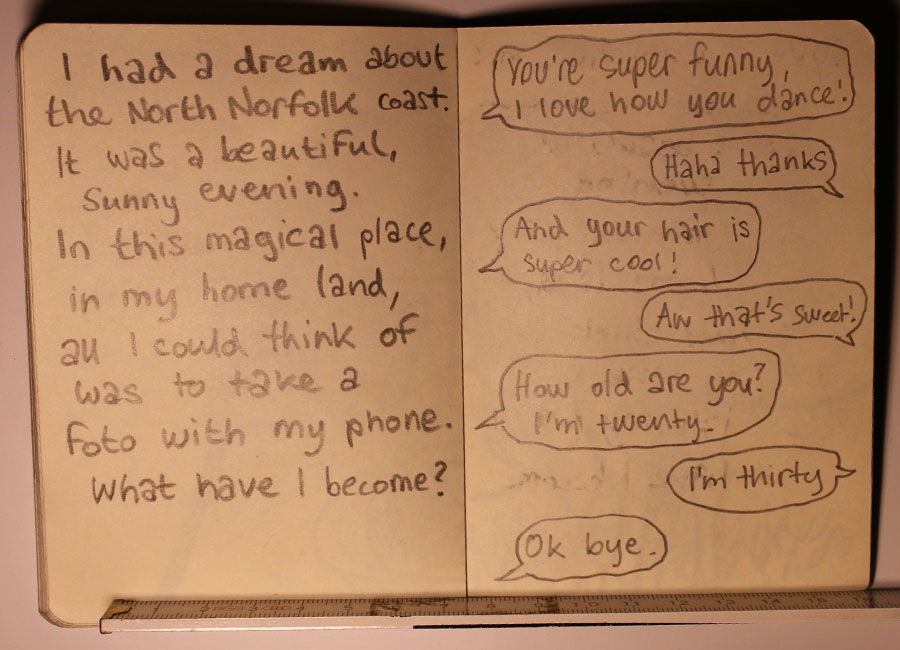 I had a dream about
the North Norfolk coast.
It was a beautiful,
sunny evening.
In this magical place,
in my home land,
all I could think of
was to take a
foto with my phone.
What have I become?
You're super funny,
I love how you dance!
Haha thanks
And your hair is
super cool!
Aw that's sweet!
How old are you?
I'm twenty.
I'm thirty
Ok bye.